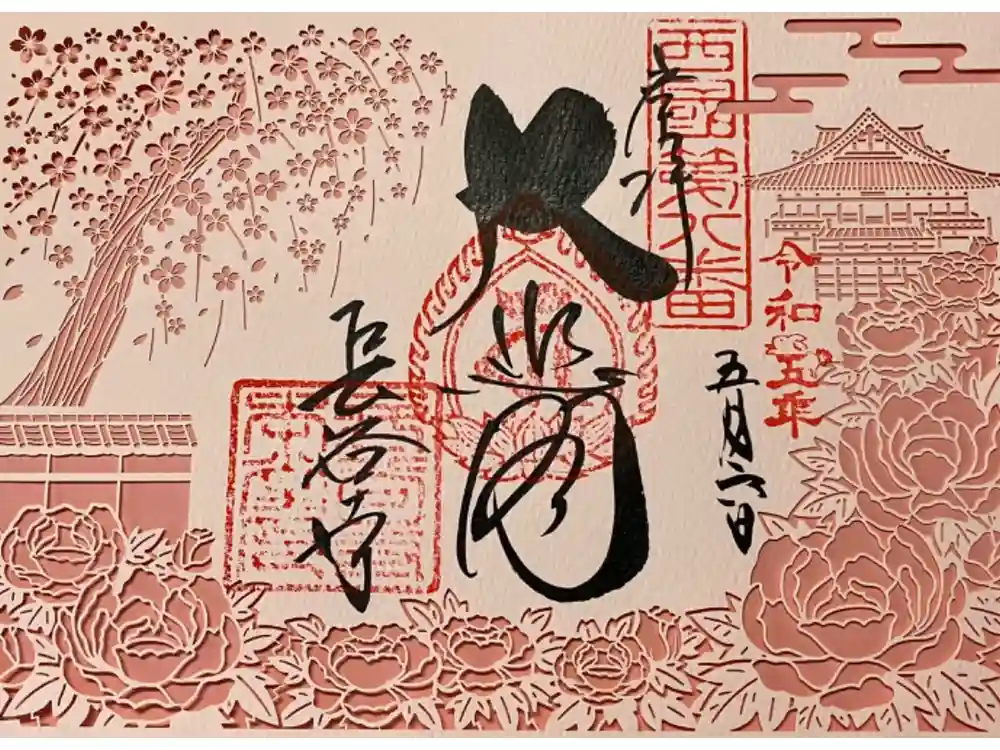 西國第八番
奉拝
令和五年
五月六日
大悲閣
長谷寺